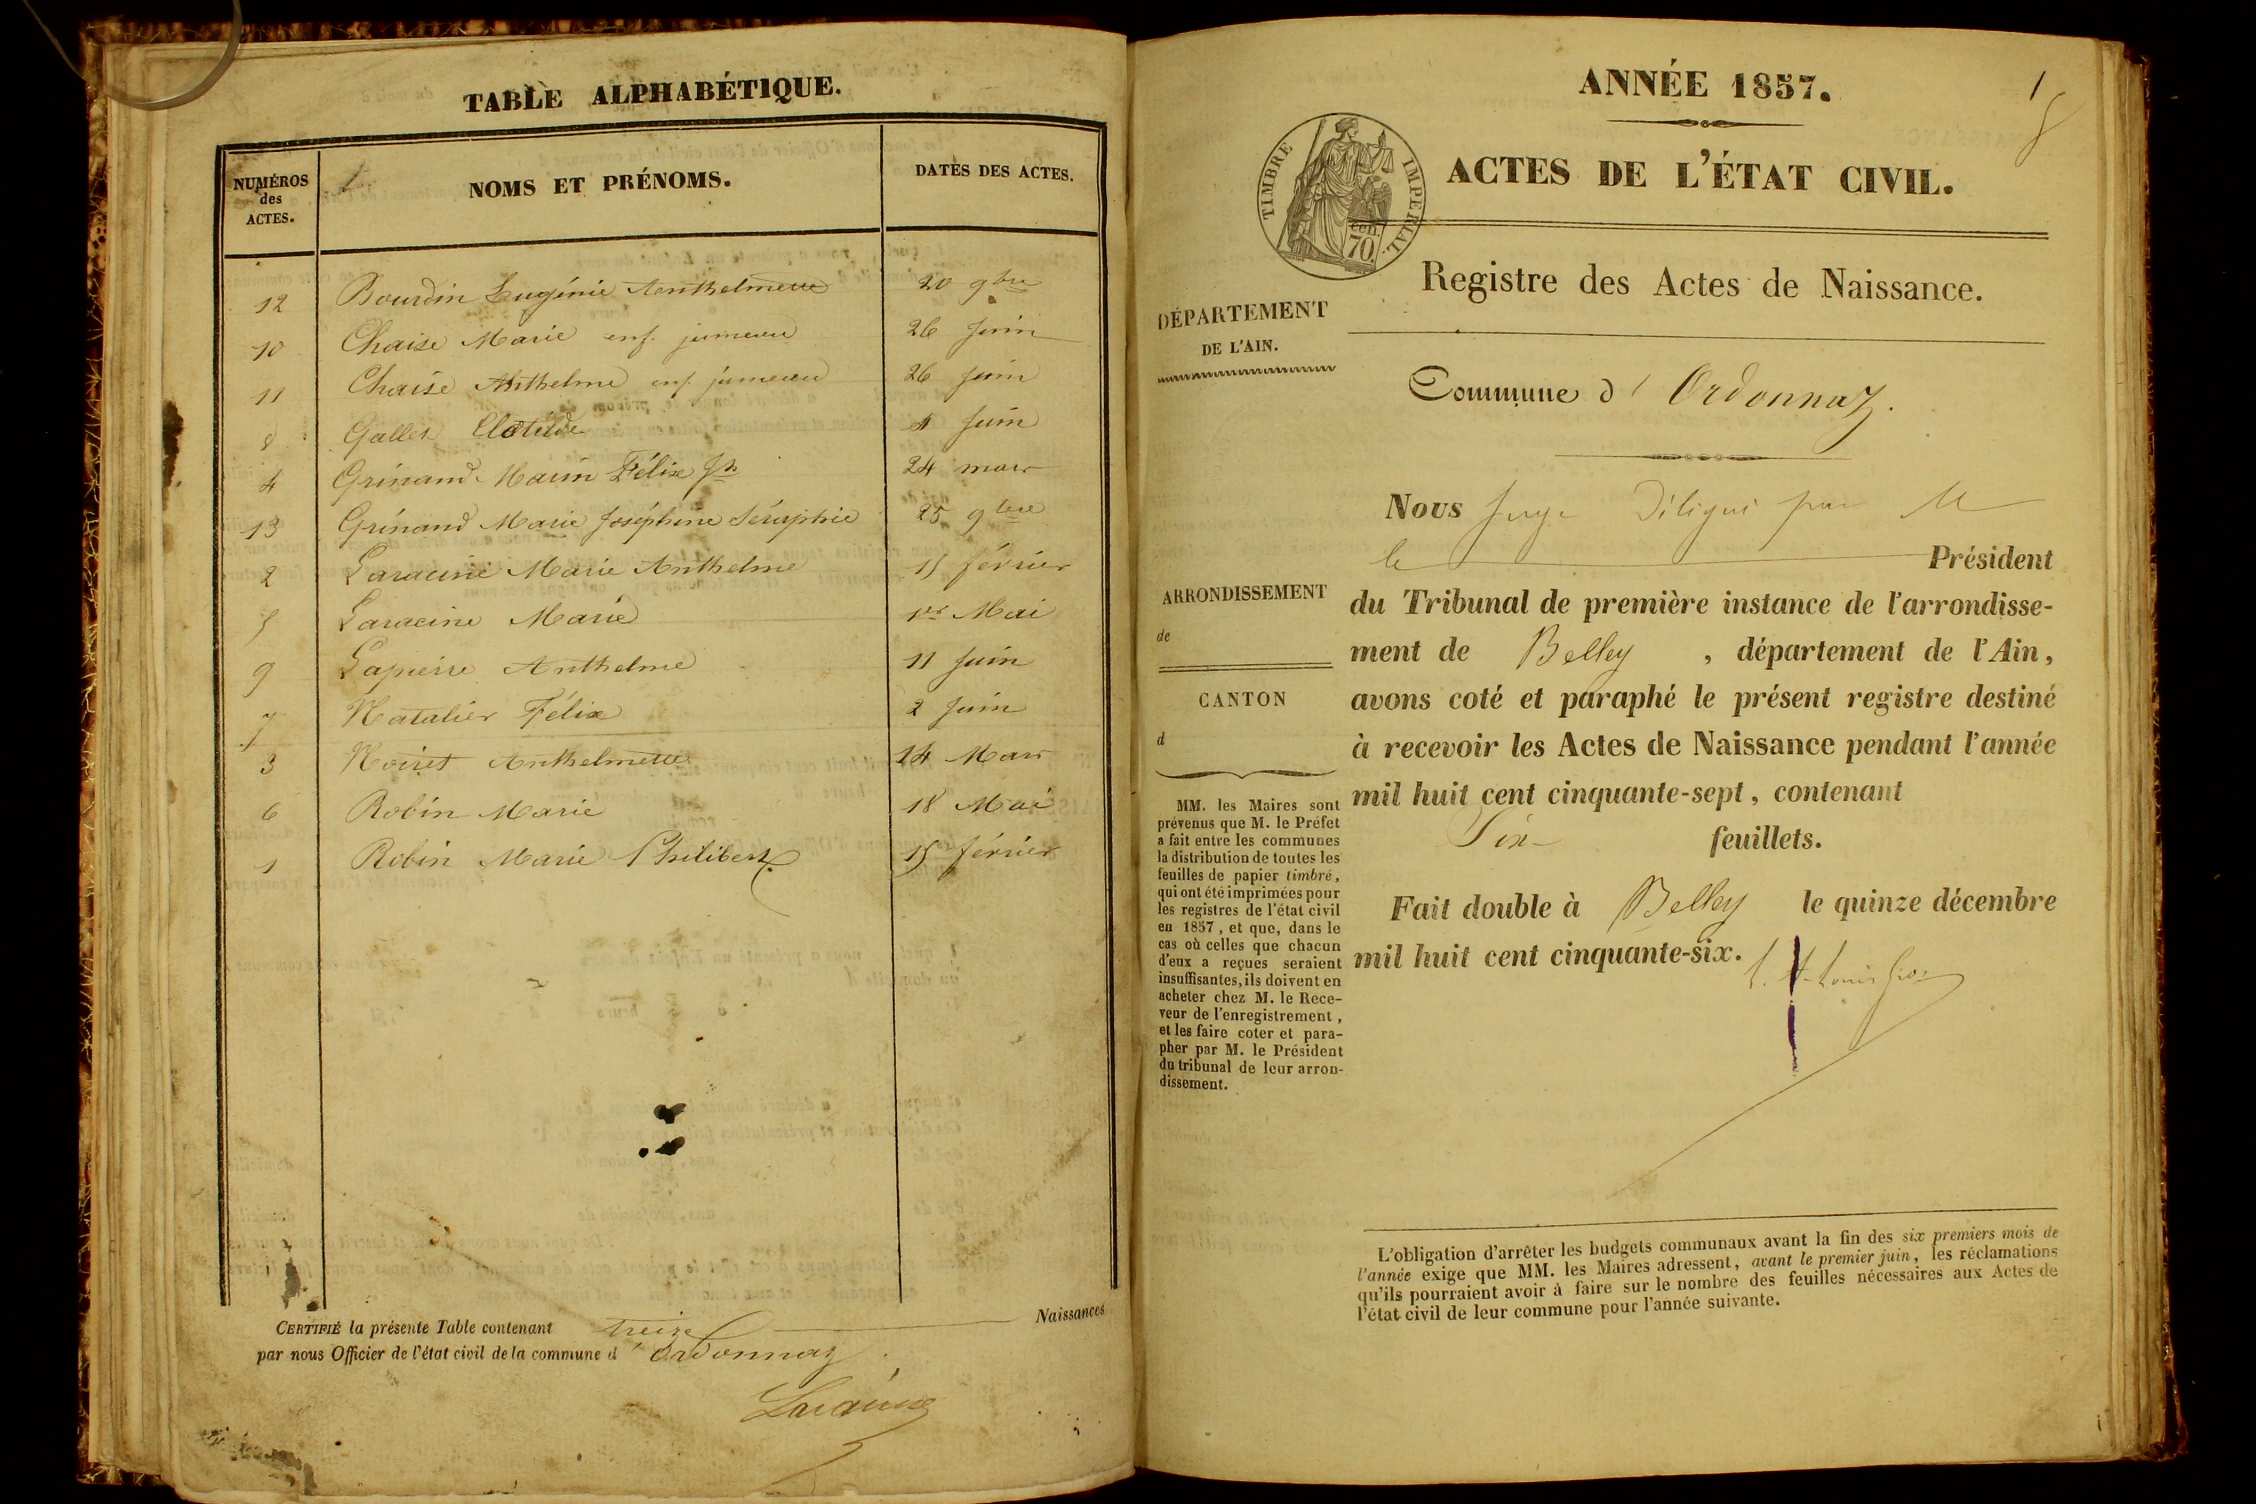 TABLE ALPHABÉTIQUE.
NUMÉROS des ACTES. NOMS ET PRÉNOMS. DATES DES ACTES.
12 Bourdin Eugénie Anthelmette 20 9bre
10 Chaise Marie enf. jumeau 26 juin
11 Chaise Anthelme enf. jumeau 26 juin
8 Gallet Clotilde 4 Juin
4 Grinand Marin Félix Jh 24 mars
13 Grinand Marie Joséphine Séraphie 25 9bre
2 Laracine Marie Anthelme 15 février
5 Laracine Marie 1er Mai
9 Lapierre Anthelme 11 Juin
7 Natalier Félix 2 Juin
3 Noiret Anthelmette 14 Mars
6 Robin Marie 18 Mai
1 Robin Marie Philibert 15 février
CERTIFIÉ la présente Table contenant treize Naissances
par nous Officier de l'état civil de la commune d'Ordonnaz.
Laracine
1
ANNÉE 1857.
TIMBRE IMPERIAL.
cen. 70.
ACTES DE L'ÉTAT CIVIL.
Registre des Actes de Naissance.
DÉPARTEMENT
DE L'AIN.
Commune d'Ordonnaz.
ARRONDISSEMENT
de
CANTON
d
MM. les Maires sont
prévenus que M. le Préfet
a fait entre les communes
la distribution de toutes les
feuilles de papier timbré,
qui ont été imprimées pour
les registres de l'état civil
en 1857, et que, dans le
cas où celles que chacun
d'eux a reçues seraient
insuffisantes, ils doivent en
acheter chez M. le Rece-
veur de l'enregistrement,
et les faire coter et para-
pher par M. le Président
du tribunal de leur arron-
dissement.
Nous Juge Délégué par M
le Président
du Tribunal de première instance de l'arrondisse-
ment de Belley, département de l'Ain,
avons coté et paraphé le présent registre destiné
à recevoir les Actes de Naissance pendant l'année
mil huit cent cinquante-sept, contenant
Six feuillets.
Fait double à Belley le quinze décembre
mil huit cent cinquante-six.
L'obligation d'arrêter les budgets communaux avant la fin des six premiers mois de
l'année exige que MM. les Maires adressent, avant le premier juin, les réclamations
qu'ils pourraient avoir à faire sur le nombre des feuilles nécessaires aux Actes de
l'état civil de leur commune pour l'année suivante.